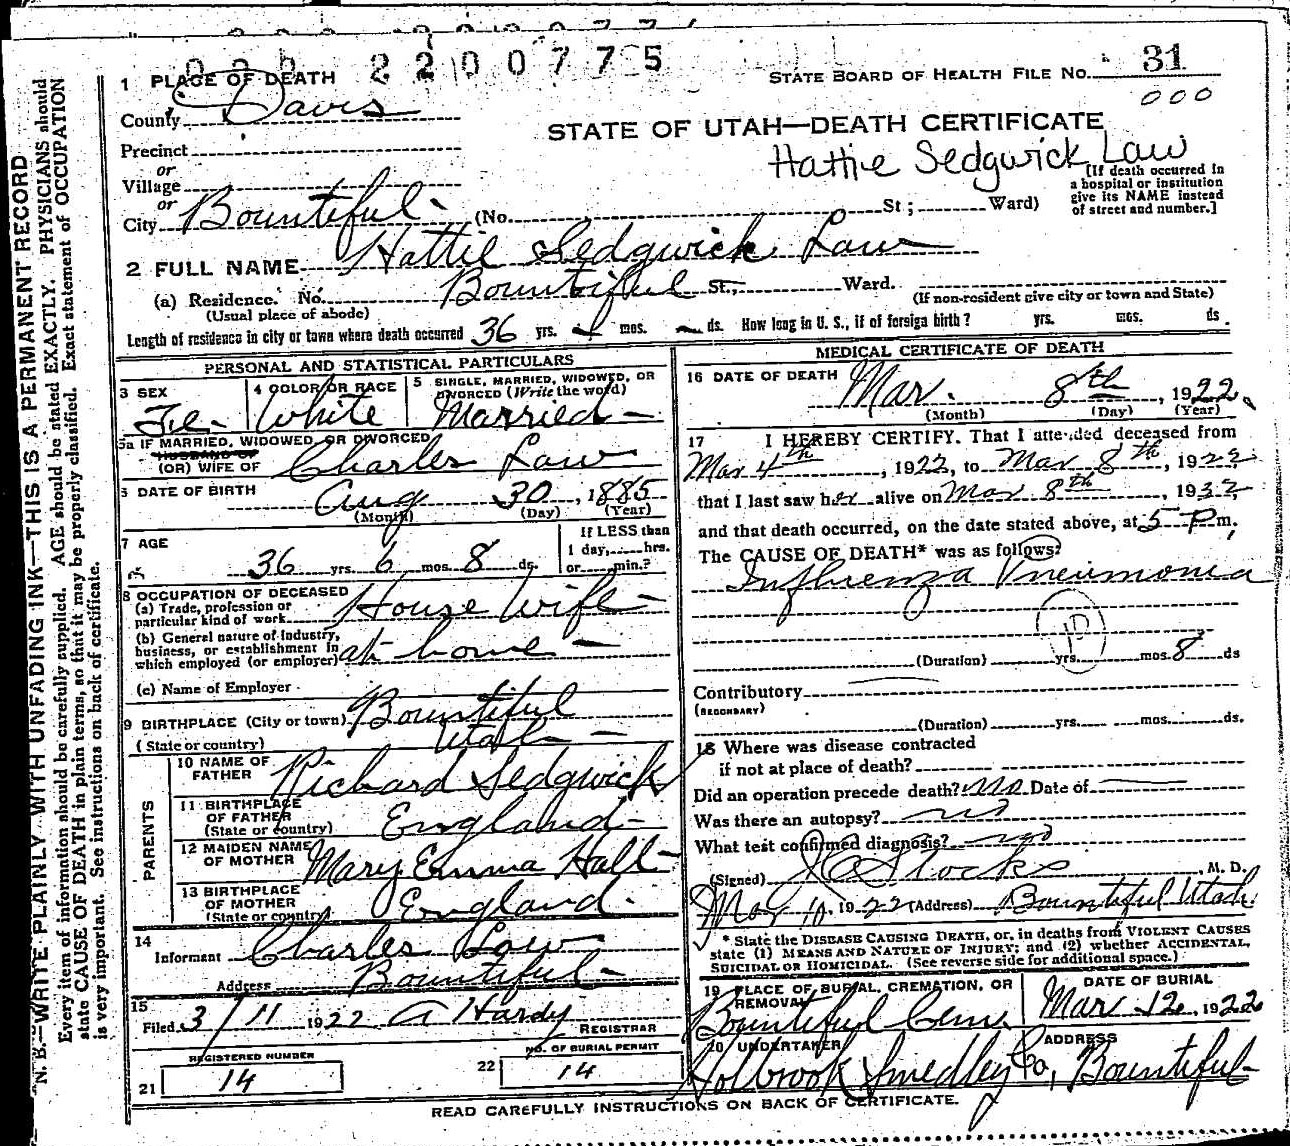 2200775
1 PLACE OF DEATH
STATE BOARD OF HEALTH FILE No. 31
000
County Davis
STATE OF UTAH—DEATH CERTIFICATE
Precinct
Hattie Sedgwick Law
or
Village
or
[If death occurred in
a hospital or institution
give its NAME instead
of street and number.]
City Bountiful - (No. St; Ward)
2 FULL NAME Hattie Sedgwick Law
(a) Residence. No. Bountiful St., Ward.
(Usual place of abode) (If non-resident give city or town and State)
Length of residence in city or town where death occurred 36 yrs. - mos. - ds. How long in U. S., if of foreign birth? yrs. mos. ds.
PERSONAL AND STATISTICAL PARTICULARS
3 SEX
Fe-
4 COLOR OR RACE
White
5 SINGLE, MARRIED, WIDOWED, OR
DIVORCED (Write the word)
Married -
5a IF MARRIED, WIDOWED, OR DIVORCED
HUSBAND OF
(OR) WIFE OF Charles Law
6 DATE OF BIRTH Aug 30, 1885
(Month) (Day) (Year)
7 AGE
36 yrs. 6 mos. 8 ds.
If LESS than
1 day, hrs.
or min.?
8 OCCUPATION OF DECEASED
(a) Trade, profession or
particular kind of work House Wife -
(b) General nature of Industry,
business, or establishment in
which employed (or employer) at home -
(c) Name of Employer
9 BIRTHPLACE (City or town) Bountiful
(State or country) Utah -
PARENTS
10 NAME OF
FATHER Richard Sedgwick
11 BIRTHPLACE
OF FATHER
(State or country) England -
12 MAIDEN NAME
OF MOTHER Mary Emma Hall -
13 BIRTHPLACE
OF MOTHER
(State or country) England.
14
Informant Charles Law
Address Bountiful -
15
Filed 3/11 1922 A Hardy
REGISTRAR
REGISTERED NUMBER
21 14
NO. OF BURIAL PERMIT
22 14
MEDICAL CERTIFICATE OF DEATH
16 DATE OF DEATH
Mar. 8th, 1922.
(Month) (Day) (Year)
17 I HEREBY CERTIFY. That I attended deceased from
Mar 4th, 1922, to Mar 8th, 1922
that I last saw her alive on Mar 8th, 1922
and that death occurred, on the date stated above, at 5 P m.
The CAUSE OF DEATH* was as follows:
Influenza Pneumonia
10
(Duration) yrs. mos. 8 ds
Contributory
(SECONDARY)
(Duration) yrs. mos. ds.
18 Where was disease contracted
if not at place of death?
Did an operation precede death? No Date of
Was there an autopsy? no
What test confirmed diagnosis? no
(Signed) Stocks, M. D.
Mar 10, 1922 (Address) Bountiful Utah
* State the DISEASE CAUSING DEATH, or, in deaths from VIOLENT CAUSES
state (1) MEANS AND NATURE OF INJURY; and (2) whether ACCIDENTAL,
SUICIDAL OR HOMICIDAL. (See reverse side for additional space.)
19 PLACE OF BURIAL, CREMATION, OR
REMOVAL
Bountiful Cem.
DATE OF BURIAL
Mar 12, 1922
20 UNDERTAKER
Holbrook Smedley Co,
ADDRESS
Bountiful -
READ CAREFULLY INSTRUCTIONS ON BACK OF CERTIFICATE.
N. B.—WRITE PLAINLY WITH UNFADING INK—THIS IS A PERMANENT RECORD
Every item of information should be carefully supplied. AGE should be stated EXACTLY. PHYSICIANS should
state CAUSE OF DEATH in plain terms, so that it may be properly classified. Exact statement of OCCUPATION
is very important. See instructions on back of certificate.